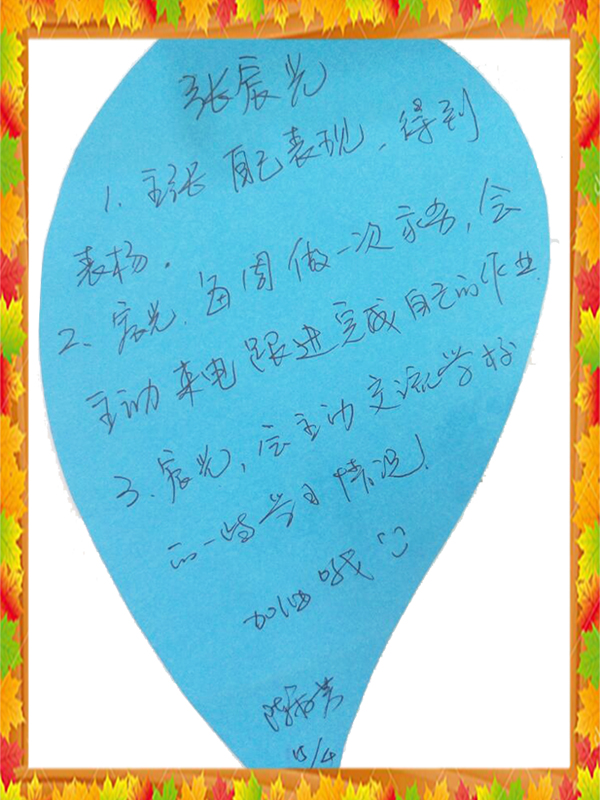 张宸光
1. 主张自己表现，得到
表扬。
2、宸光，每周做一次家务，会
主动来电跟进完成自己的作业.
3. 宸光，会主动交流学校
的一些当日情况!
加油哦
15/4